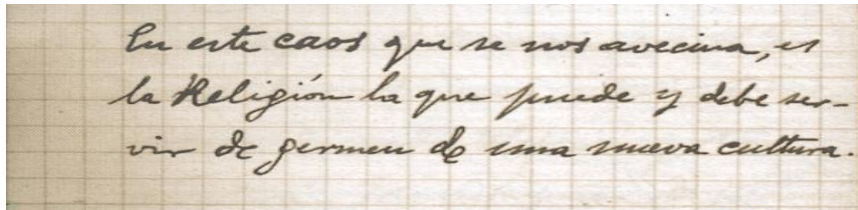 En este caos que se nos avecina, es
la Religión la que puede y debe ser-
vir de germen de una nueva cultura.